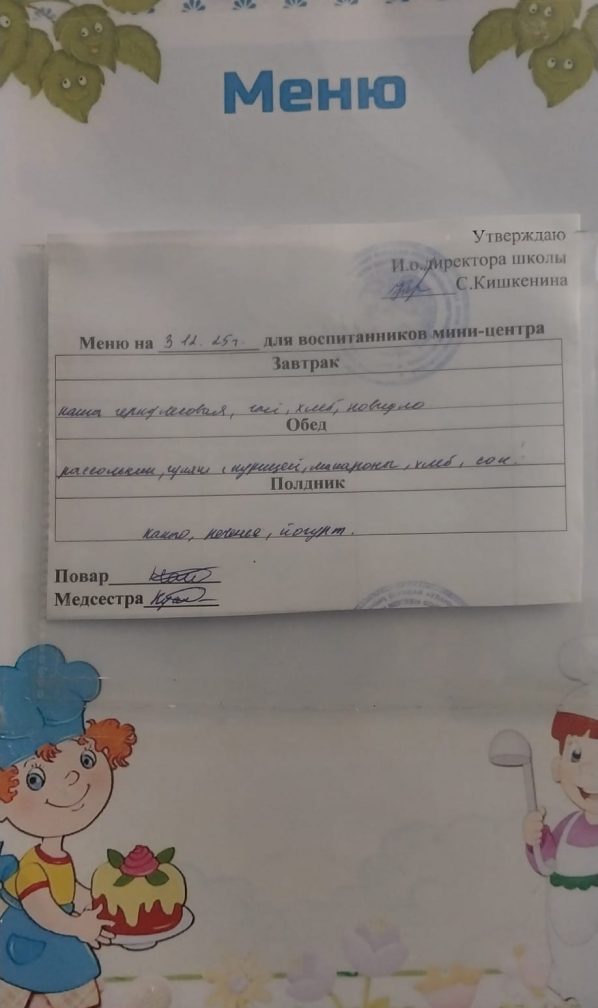 Меню
Утверждаю
И.о.директора школы
С.Кишкенина
Меню на 3 12. 25г. для воспитанников мини-центра
Завтрак
каша геркулесовая, чай, хлеб, повидло
Обед
рассольник, с курицей, макароны, хлеб, сок.
Полдник
какао, печенье, йогурт.
Повар
Медсестра